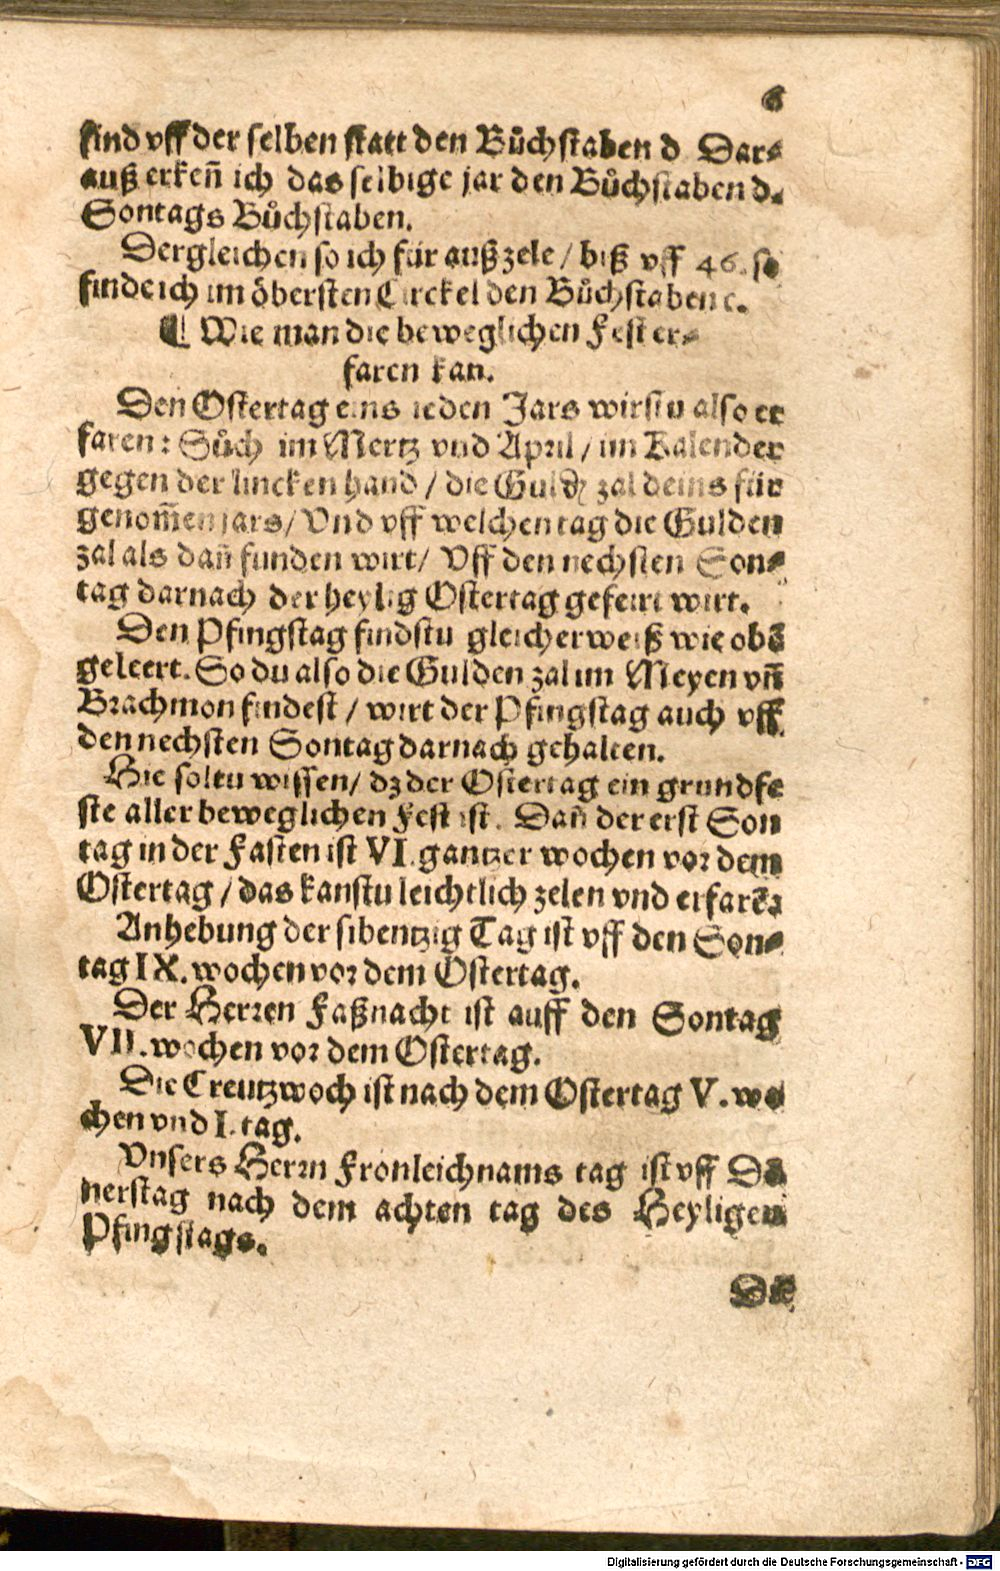 6
find vff der selben statt den Bůchstaben d Dar⸗
auß erkeñ ich das selbige jar den Bůchstaben d.
Sontags Bůchstaben.
Dergleichen so ich für außzele / biß vff 46. so
finde ich im öbersten Circkel den Bůchstaben c.
¶ Wie man die beweglichen Fest er⸗
faren kan.
Den Ostertag eins ieden Jars wirstu also er
faren: Sůch im Mertz vnd April / im Kalender
gegen der lincken hand / die Guldẽ zal deins für
genom̃en jars / Vnd vff welchen tag die Gulden
zal als dañ funden wirt / Vff den nechsten Son⸗
tag darnach der heylig Ostertag gefeirt wirt.
Den Pfingstag findstu gleicher weiß wie obẽ
geleert. So du also die Gulden zal im Meyen vñ
Brachmon findest / wirt der Pfingstag auch vff
den nechsten Sontag darnach gehalten.
Hie soltu wissen / dz der Ostertag ein grundfe
ste aller beweglichen Fest ist. Dañ der erst Son
tag in der Fasten ist VI. gantzer wochen vor dem
Ostertag / das kanstu leichtlich zelen vnd erfarẽ.
Anhebung der sibentzig Tag ist vff den Son⸗
tag IX. wochen vor dem Ostertag.
Der Herren Faßnacht ist auff den Sontag
VII. wochen vor dem Ostertag.
Die Creutzwoch ist nach dem Ostertag V. wo
chen vnd I. tag.
Vnsers Herrn Fronleichnams tag ist vff Dõ
nerstag nach dem achten tag des Heyligen
Pfingstags.
Die
Digitalisierung gefördert durch die Deutsche Forschungsgemeinschaft - DFG